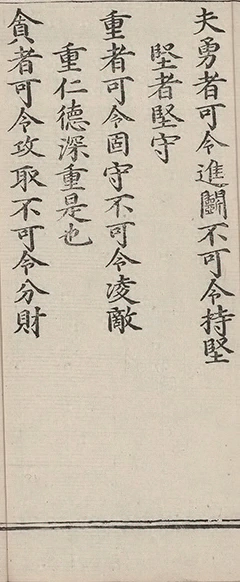 夫勇者可令進鬬不可令持堅
堅者堅守
重者可令固守不可令凌敵
重仁德深重是也
貪者可令攻取不可令分財